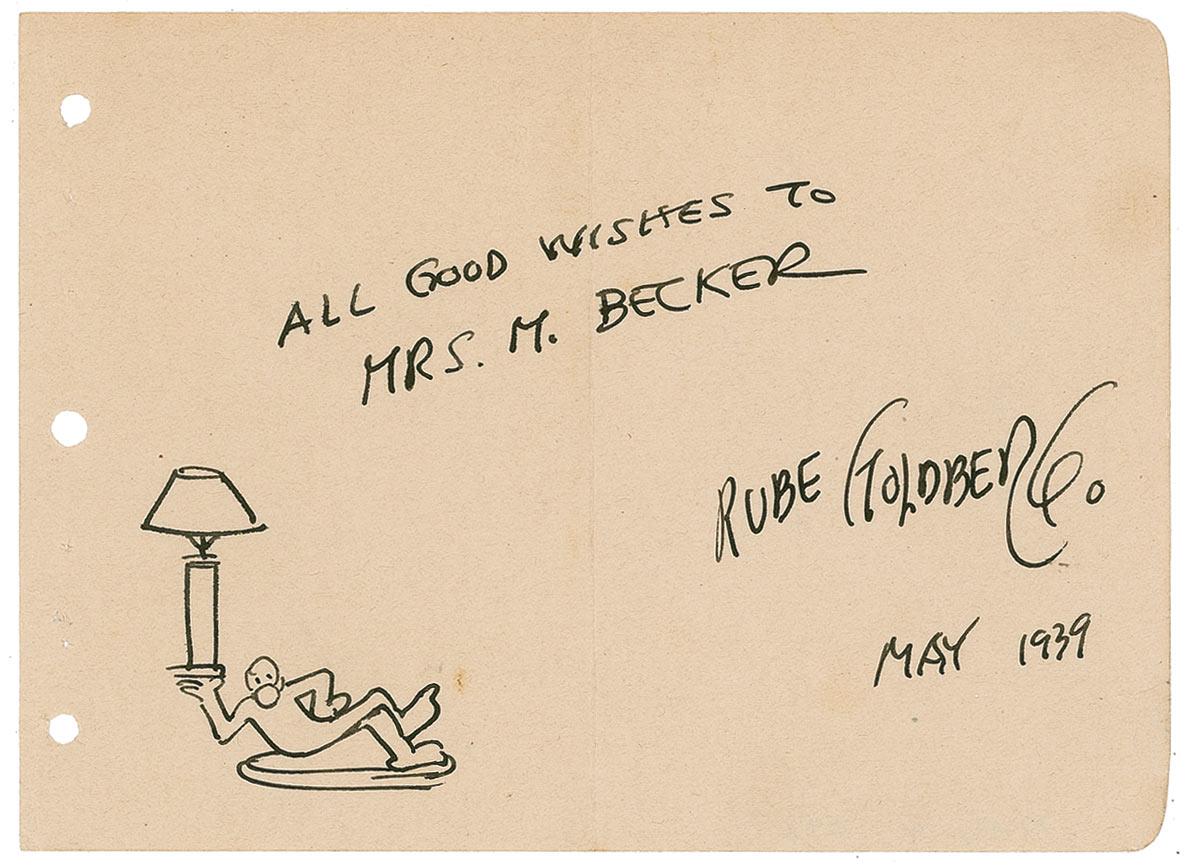 ALL GOOD WISHES TO
MRS. M. BECKER
RUBE GOLDBERG.
MAY 1939